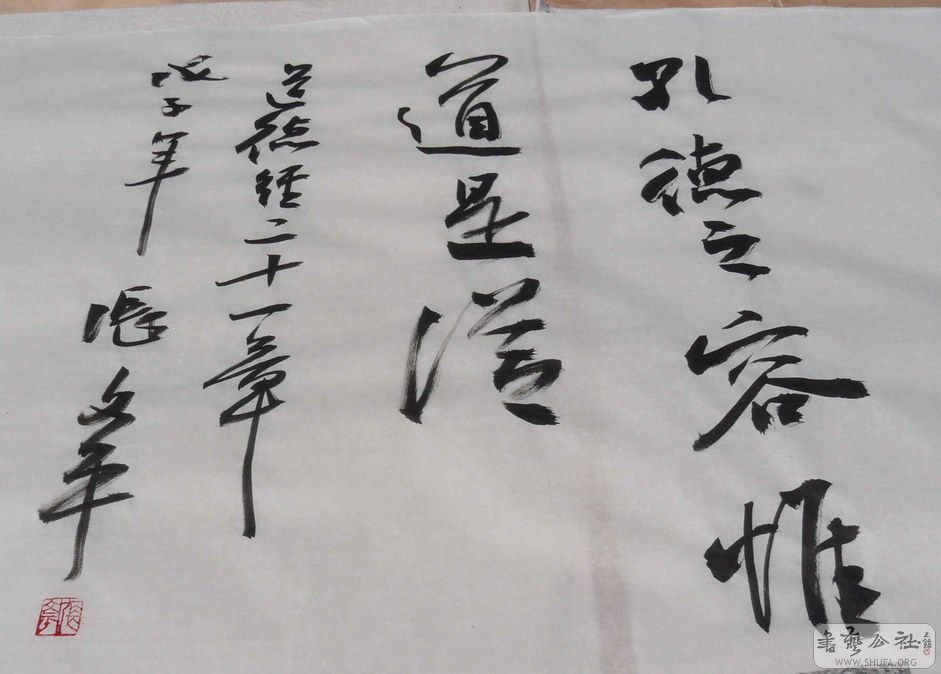 孔德之容惟
道是從
道德經二十一章
戊子年 張
書藝公社
WWW.SHUFA.ORG